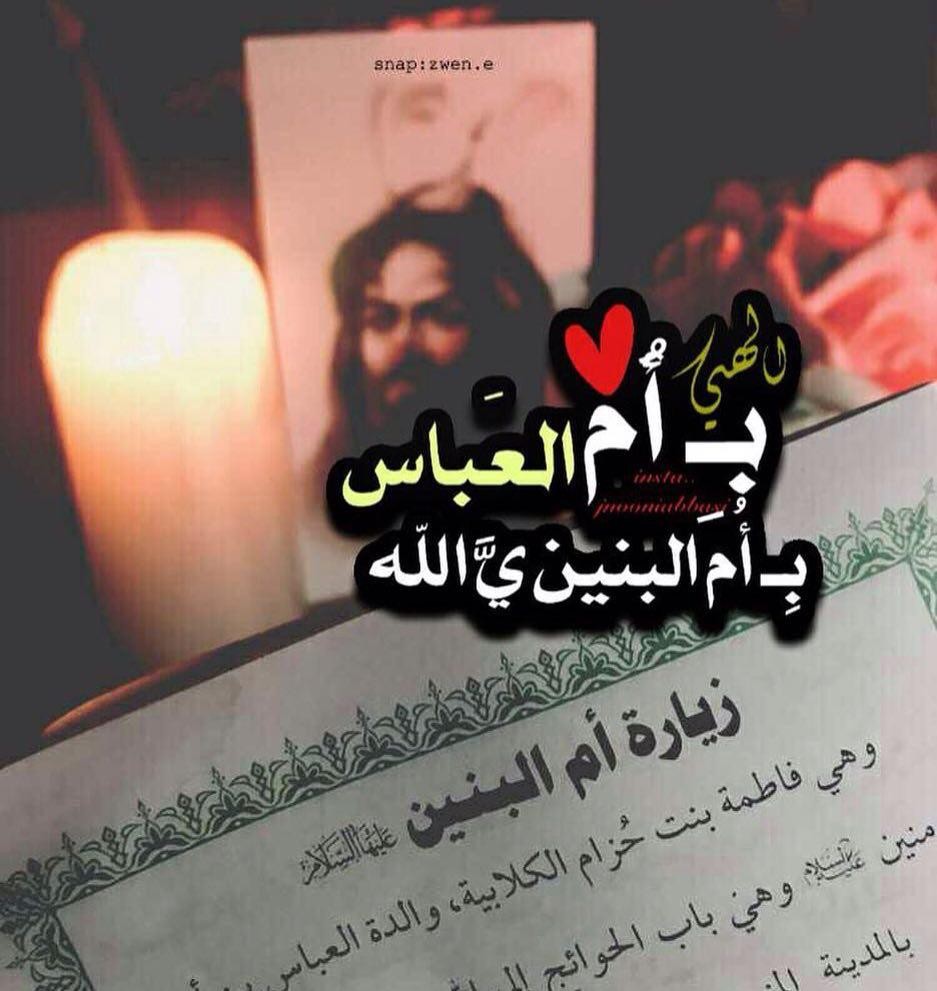 snap:zwen.e
الهي
بـ أُم العَباس
insta..
jnooniabbasi
بِـ أُم البَنين يَّ الله
زيارة أم البنين عليها السلام
وهي فاطمة بنت حُزام الكلابية، والدة العباس بن أ
منين عليه السلام وهي باب الحوائج
بالمدينة